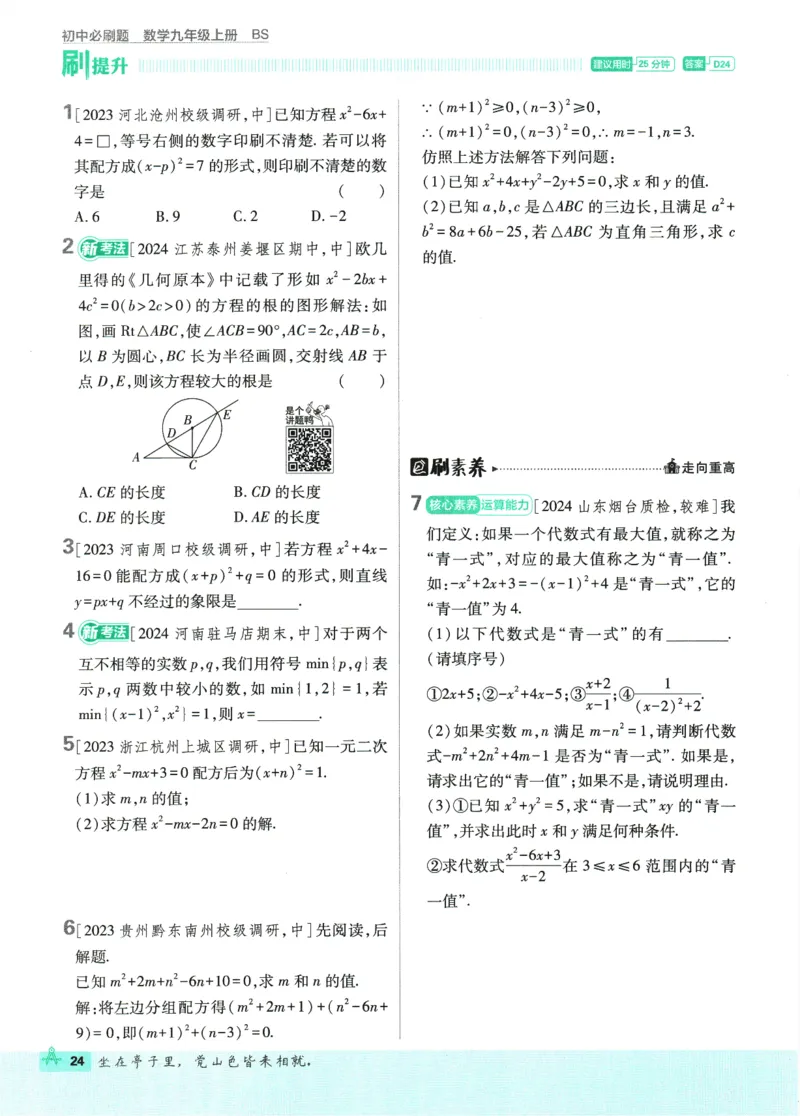 初中必刷题 数学九年级上册 BS
刷提升
建议用时 25分钟 答案 D24
1[2023河北沧州校级调研,中]已知方程x²-6x+
4=□,等号右侧的数字印刷不清楚.若可以将
其配方成(x-p)²=7的形式,则印刷不清楚的数
字是 ( )
A.6 B.9 C.2 D.-2
2 新考法 [2024江苏泰州姜堰区期中,中]欧几
里得的《几何原本》中记载了形如 x²-2bx+
4c²=0(b>2c>0)的方程的根的图形解法:如
图,画Rt△ABC,使∠ACB=90°,AC=2c,AB=b,
以B为圆心,BC长为半径画圆,交射线AB于
点D,E,则该方程较大的根是 ( )
B
E
D
A
C
是个
讲题鸭
A.CE的长度 B.CD的长度
C.DE的长度 D.AE的长度
3[2023河南周口校级调研,中]若方程x²+4x-
16=0能配方成(x+p)²+q=0的形式,则直线
y=px+q不经过的象限是________.
4 新考法 [2024河南驻马店期末,中]对于两个
互不相等的实数p,q,我们用符号min{p,q}表
示p,q两数中较小的数,如min{1,2}=1,若
min{(x-1)²,x²}=1,则x=________.
5[2023浙江杭州上城区调研,中]已知一元二次
方程x²-mx+3=0配方后为(x+n)²=1.
(1)求m,n的值;
(2)求方程x²-mx-2n=0的解.
6[2023贵州黔东南州校级调研,中]先阅读,后
解题.
已知m²+2m+n²-6n+10=0,求m和n的值.
解:将左边分组配方得(m²+2m+1)+(n²-6n+
9)=0,即(m+1)²+(n-3)²=0.
∵(m+1)²≥0,(n-3)²≥0,
∴(m+1)²=0,(n-3)²=0,∴m=-1,n=3.
仿照上述方法解答下列问题:
(1)已知x²+4x+y²-2y+5=0,求x和y的值.
(2)已知a,b,c是△ABC的三边长,且满足a²+
b²=8a+6b-25,若△ABC为直角三角形,求c
的值.
刷素养 走向重高
7 核心素养 运算能力 [2024山东烟台质检,较难]我
们定义:如果一个代数式有最大值,就称之为
“青一式”,对应的最大值称之为“青一值”.
如:-x²+2x+3=-(x-1)²+4是“青一式”,它的
“青一值”为4.
(1)以下代数式是“青一式”的有________.
(请填序号)
①2x+5;②-x²+4x-5;③(x+2)/(x-1);④1/((x-2)²+2).
(2)如果实数m,n满足m-n²=1,请判断代数
式-m²+2n²+4m-1是否为“青一式”.如果是,
请求出它的“青一值”;如果不是,请说明理由.
(3)①已知x²+y²=5,求“青一式”xy的“青一
值”,并求出此时x和y满足何种条件.
②求代数式(x²-6x+3)/(x-2)在3≤x≤6范围内的“青
一值”.
24 坐在亭子里,觉山色皆来相就.